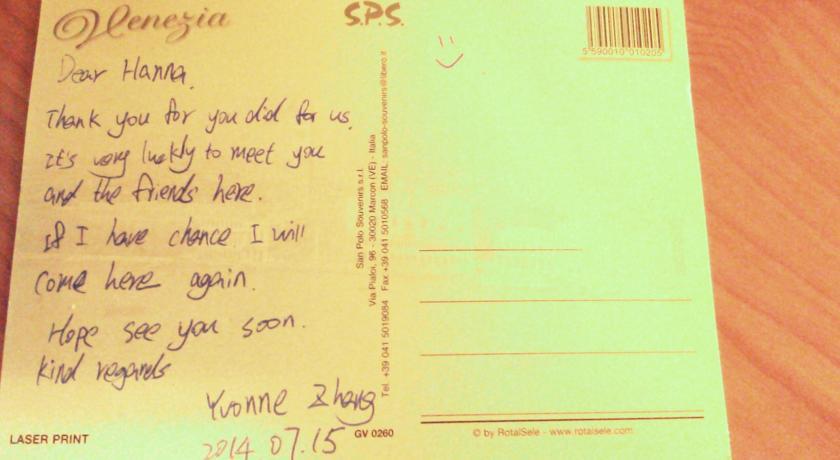 Venezia
Dear Hanna,
Thank you for you did for us,
It's very luckly to meet you
and the friends here.
If I have chance I will
come here again.
Hope see you soon.
kind regards
Yvonne Zhang
2014 07.15
LASER PRINT
S.P.S.
San Polo Souvenirs s.r.l.
Via Pialoi, 96 - 30020 Marcon (VE) - Italia
Tel. +39 041 5019084 Fax +39 041 5010568 EMAIL sanpolo-souvenirs@libero.it
GV 0260
5590010010205
© by RotalSele - www.rotalsele.com